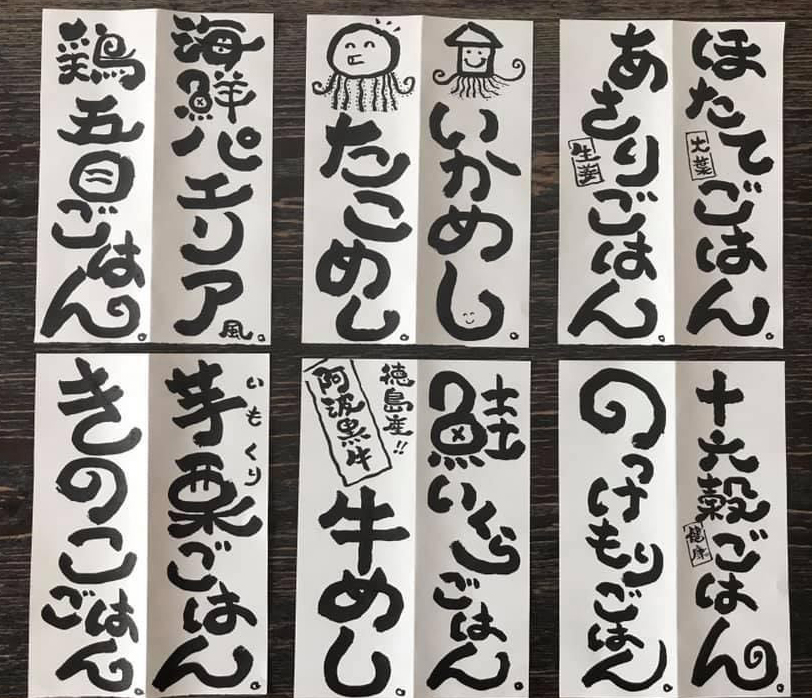 海鮮パエリア風。
鶏五目ごはん。
いかめし。
たこめし。
ほたてごはん。
大葉
あさりごはん。
生姜
芋栗ごはん。
いもくり
きのこごはん。
鮭いくらごはん。
徳島産!!
阿波黒牛
牛めし。
十六穀ごはん。
健康
のっけもりごはん。